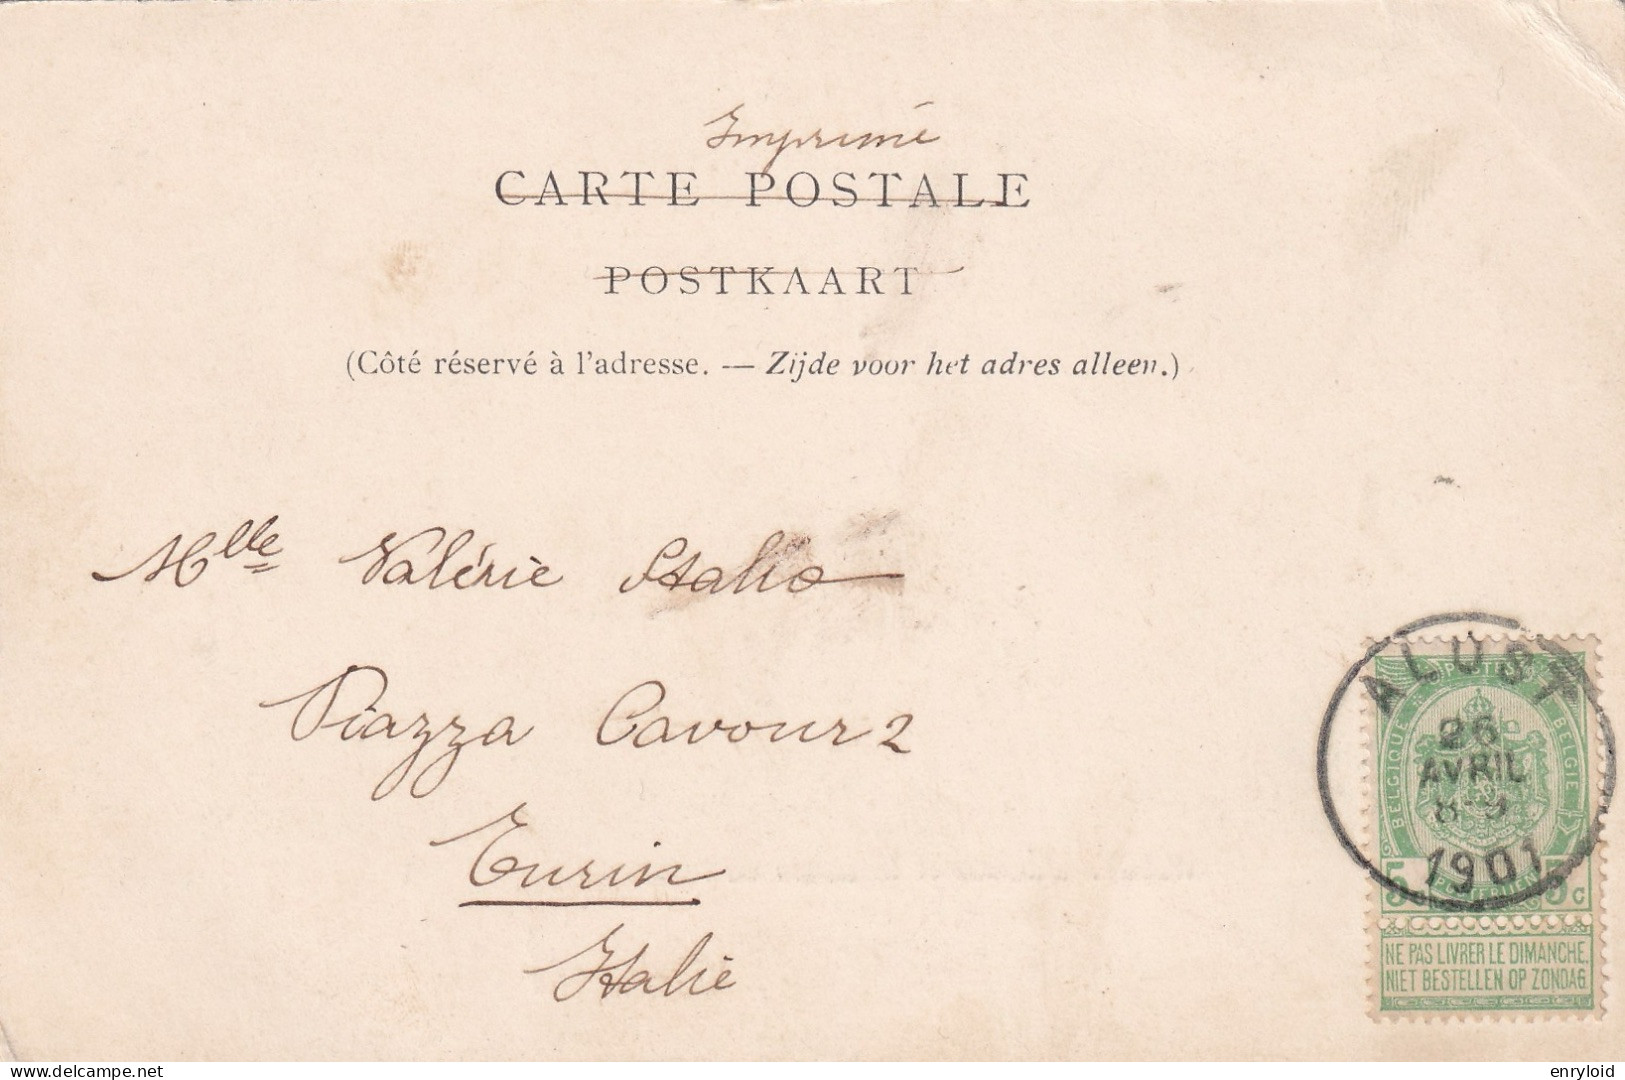 Imprimé
CARTE POSTALE
POSTKAART
(Côté réservé à l'adresse. — Zijde voor het adres alleen.)
Mlle Valérie Stalio
Piazza Cavour 2
Turin
Italie
ALOST
26
AVRIL
8-9
1901
POSTES
BELGIQUE
BELGIË
5 c
POSTERIJEN
5 c
NE PAS LIVRER LE DIMANCHE.
NIET BESTELLEN OP ZONDAG
delcampe.net
enryloid